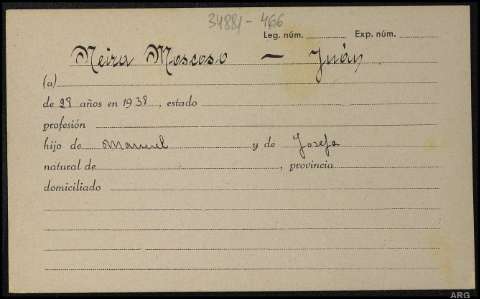 34881-466
Leg. núm. Exp. núm.
Neira Moscoso — Juán
(a)
de 28 años en 1938, estado
profesión
hijo de Manuel y de Josefa
natural de , provincia
domiciliado
ARG